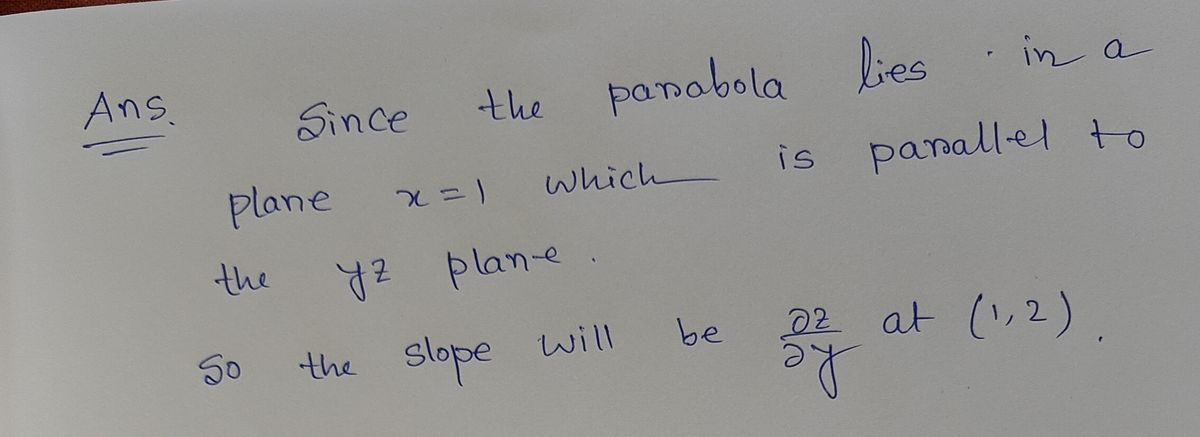 Ans. Since the parabola lies in a
plane x=1 which is parallel to
the yz plane.
So the slope will be ∂z/∂y at (1,2).